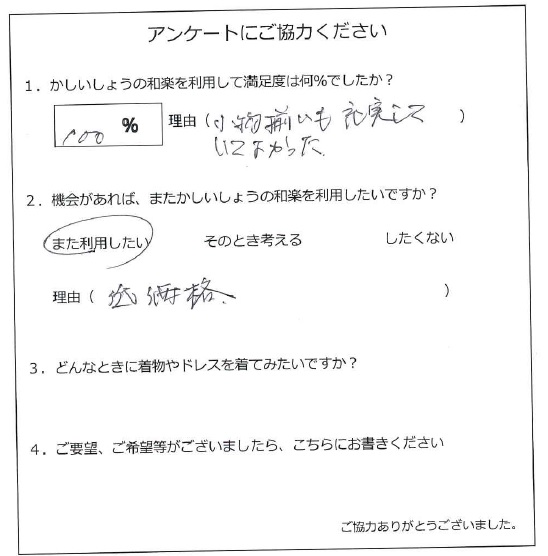 アンケートにご協力ください
1．かしいしょうの和楽を利用して満足度は何%でしたか？
100 % 理由（小物揃いも充実して
いてよかった。）
2．機会があれば、またかしいしょうの和楽を利用したいですか？
また利用したい そのとき考える したくない
理由（低価格、）
3．どんなときに着物やドレスを着てみたいですか？
4．ご要望、ご希望等がございましたら、こちらにお書きください
ご協力ありがとうございました。